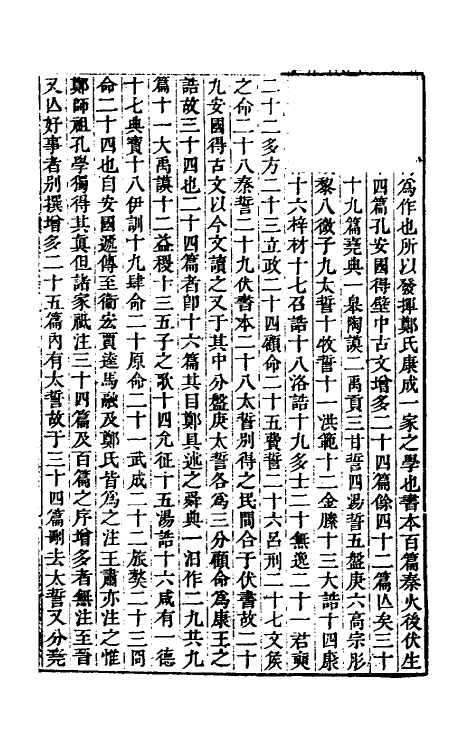 為作也所以發揮鄭氏康成一家之學也書本百篇秦火後伏生
四篇孔安國得壁中古文增多二十四篇餘四十二篇亾矣三十
十九篇堯典一臯陶謨二禹貢三甘誓四湯誓五盤庚六高宗肜
黎八微子九太誓十牧誓十一洪範十二金縢十三大誥十四康
十六梓材十七召誥十八洛誥十九多士二十無逸二十一君奭
二十二多方二十三立政二十四顧命二十五費誓二十六呂刑二十七文侯
之命二十八秦誓二十九伏書本二十八太誓別得之民間合于伏書故二十
九安國得古文以今文讀之又于其中分盤庚太誓各為三分顧命為康王之
誥故三十四也二十四篇者卽十六篇其目鄭具述之舜典一汩作二九共九
篇十一大禹謨十二益稷十三五子之歌十四允征十五湯誥十六咸有一德
十七典寶十八伊訓十九肆命二十原命二十一武成二十二旅獒二十三冏
命二十四也自安國遞傳至衞宏賈逵馬融及鄭氏皆為之注王肅亦注之惟
鄭師祖孔學獨得其真但諸家祇注三十四篇及百篇之序增多者無注至晉
又亾好事者别撰增多二十五篇內有太誓故于三十四篇刪去太誓又分堯